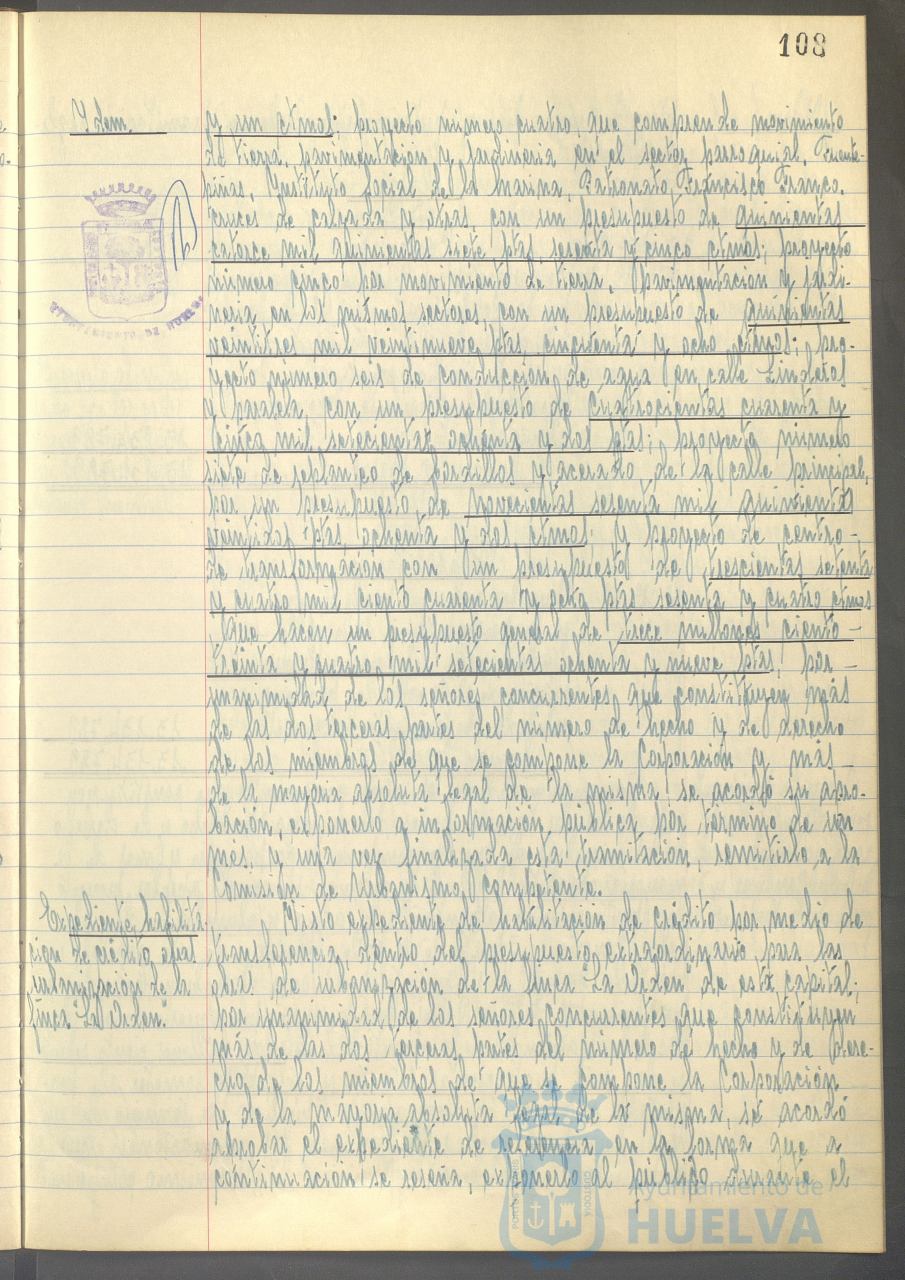 108
Idem.
y un ctmos; proyecto número cuatro, que comprende movimiento
de tierra, pavimentación y jardineria en el sector parroquial, Fuente-
piñas, Instituto Social de la Marina, Patronato Francisco Franco.
cruces de calzada y otras, con un presupuesto de quinientas
catorce mil quinientas siete ptas. sesenta y cinco ctmos; proyecto
número cinco por movimiento de tierra, pavimentación y jardi-
neria en los mismos sectores, con un presupuesto de quinientas
veintitres mil veintinueve ptas. cincuenta y ocho ctmos; pro-
yecto número seis de conducción de agua en calle Linderos
y paralela, con un presupuesto de cuatrocientas cuarenta y
cinco mil setecientas ochenta y dos ptas; proyecto número
siete de replanteo de bordillos y acerado, de la calle principal,
por un presupuesto, de novecientas sesenta mil quinientas
veintidos ptas. ochenta y dos ctmos; y proyecto de centro-
de transformación con un presupuesto de trescientas setenta
y cuatro mil ciento cuarenta y ocho ptas sesenta y cuatro ctmos
que hacen un presupuesto general de trece millones ciento-
treinta y cuatro mil setecientas ochenta y nueve ptas, por-
unanimidad de los señores concurrentes que constituyen más
de las dos terceras partes del número de hecho y de derecho
de los miembros de que se compone la Corporación y más-
de la mayoria absoluta legal de la misma se acordó su apro-
bación, exponerlo a información pública por término de un
mes, y una vez finalizada esta tramitación, remitirlo a la
Comisión de Urbanismo competente.
Expediente habilita-
ción de crédito obras
urbanización de la
finca La Orden.
Visto expediente de habilitación de crédito por medio de
transferencia, dentro del presupuesto extraordinario para las
obras de urbanización de la finca "La Orden" de esta capital;
por unanimidad de los señores concurrentes que constituyen
más de las dos terceras partes del número de hecho y de dere-
cho de los miembros de que se compone la Corporación
y de la mayoria absoluta legal de la misma, se acordó
aprobar el expediente de referencia en la forma que a
continuación se reseña, exponerlo al público durante el
Ayuntamiento de
HUELVA